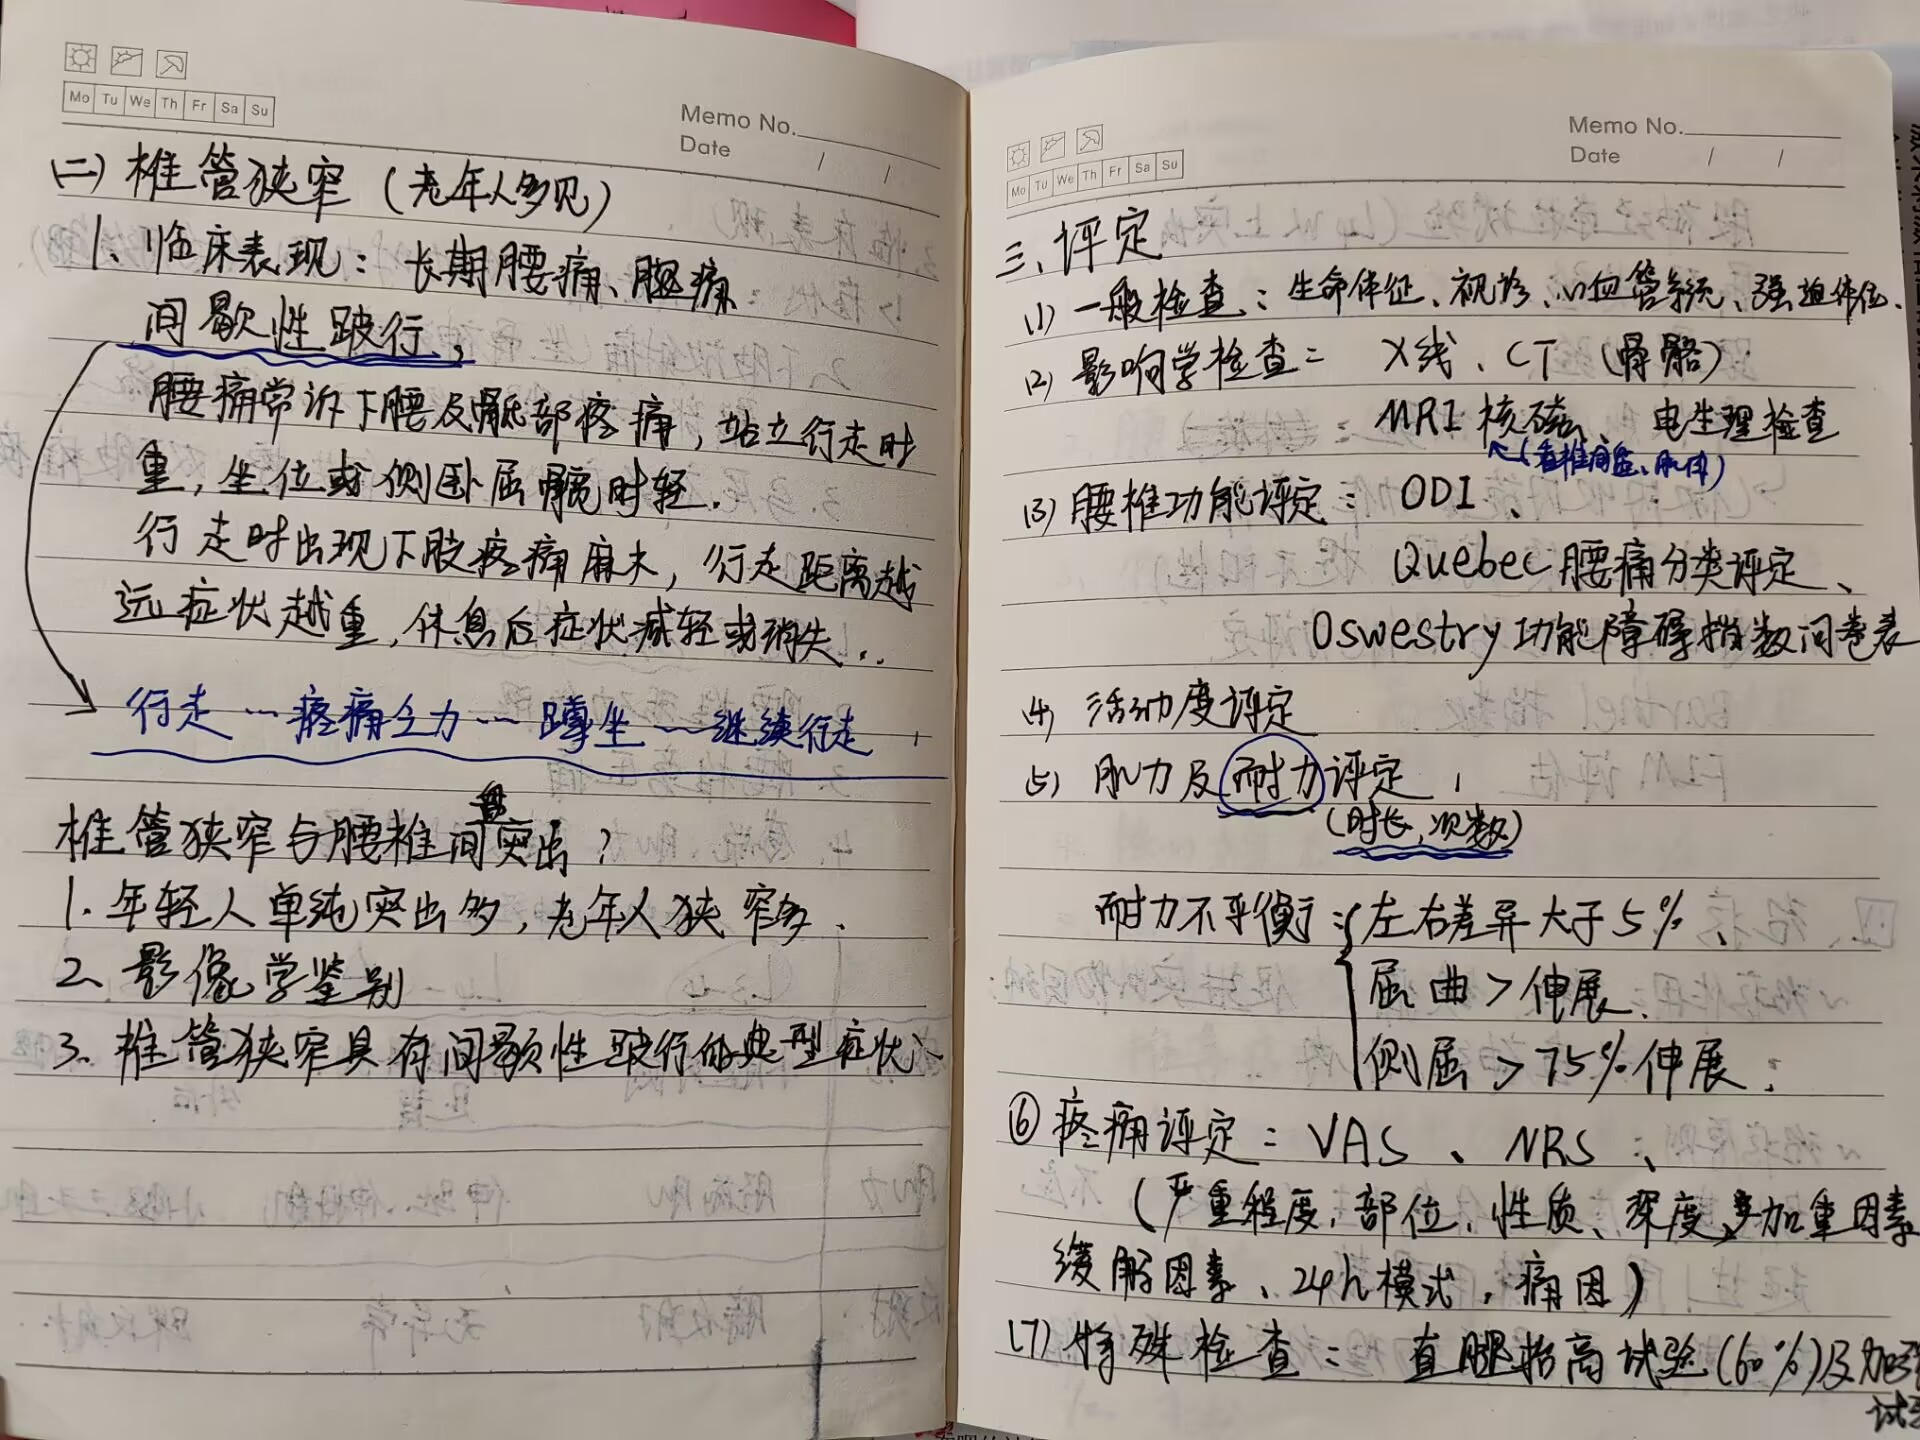 Mo Tu We Th Fr Sa Su
Memo No.
Date / /
(二) 椎管狭窄 (老年人多见)
1、临床表现: 长期腰痛、腿痛
间歇性跛行,
腰痛常诉下腰及骶部疼痛, 站立行走时
重, 坐位或侧卧屈髋时轻.
行走时出现下肢疼痛麻木, 行走距离越
远症状越重, 休息后症状减轻或消失..
行走…疼痛乏力…蹲坐…继续行走
椎管狭窄与腰椎间盘突出?
1. 年轻人单纯突出多, 老年人狭窄多.
2、影像学鉴别
3. 椎管狭窄具有间歇性跛行的典型症状、
Memo No.
Date / /
Mo Tu We Th Fr Sa Su
三、评定
(1) 一般检查: 生命体征、视诊、心血管系统、强迫体位.
(2) 影响学检查: X线、CT (骨骼)
MRI 核磁、电生理检查
(看椎间盘、肌肉)
(3) 腰椎功能评定: ODI、
Quebec 腰痛分类评定、
Oswestry 功能障碍指数问卷表
(4) 活动度评定
(5) 肌力及耐力评定,
(时长, 次数)
耐力不平衡: { 左右差异大于5%、
屈曲>伸展.
侧屈>75%伸展.
⑥ 疼痛评定: VAS、NRS、
(严重程度, 部位, 性质、深度、加重因素
缓解因素、24h模式, 痛因)
(7) 特殊检查: 直腿抬高试验(60%)及加强
试